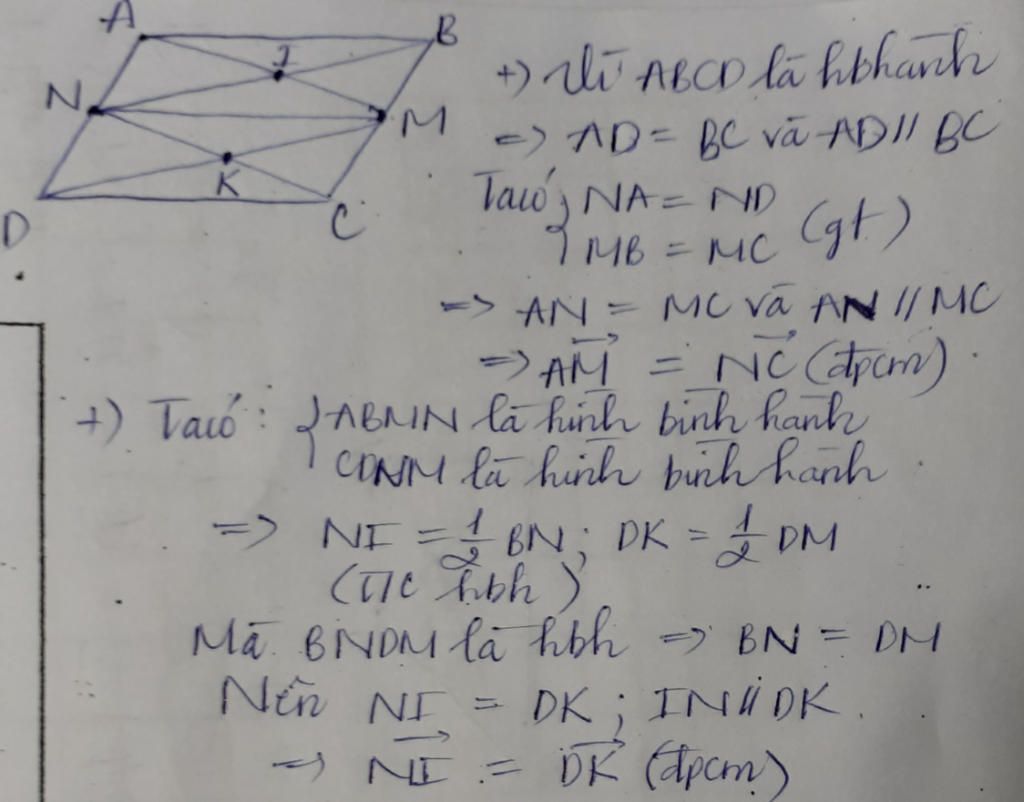 A
B
I
N
M
K
D
C
+) Vì ABCD là hbhành
=> AD = BC và AD // BC
Ta có { NA = ND
MB = MC (gt)
=> AN = MC và AN // MC
=> \overrightarrow{AM} = \overrightarrow{NC} (đpcm).
+) Ta có: { ABMN là hình bình hành
CDNM là hình bình hành.
=> NI = \frac{1}{2} BN; DK = \frac{1}{2} DM
(T/c hbh)
Mà BNDM là hbh => BN = DM
Nên NI = DK; IN // DK.
=> \overrightarrow{NI} = \overrightarrow{DK} (đpcm)